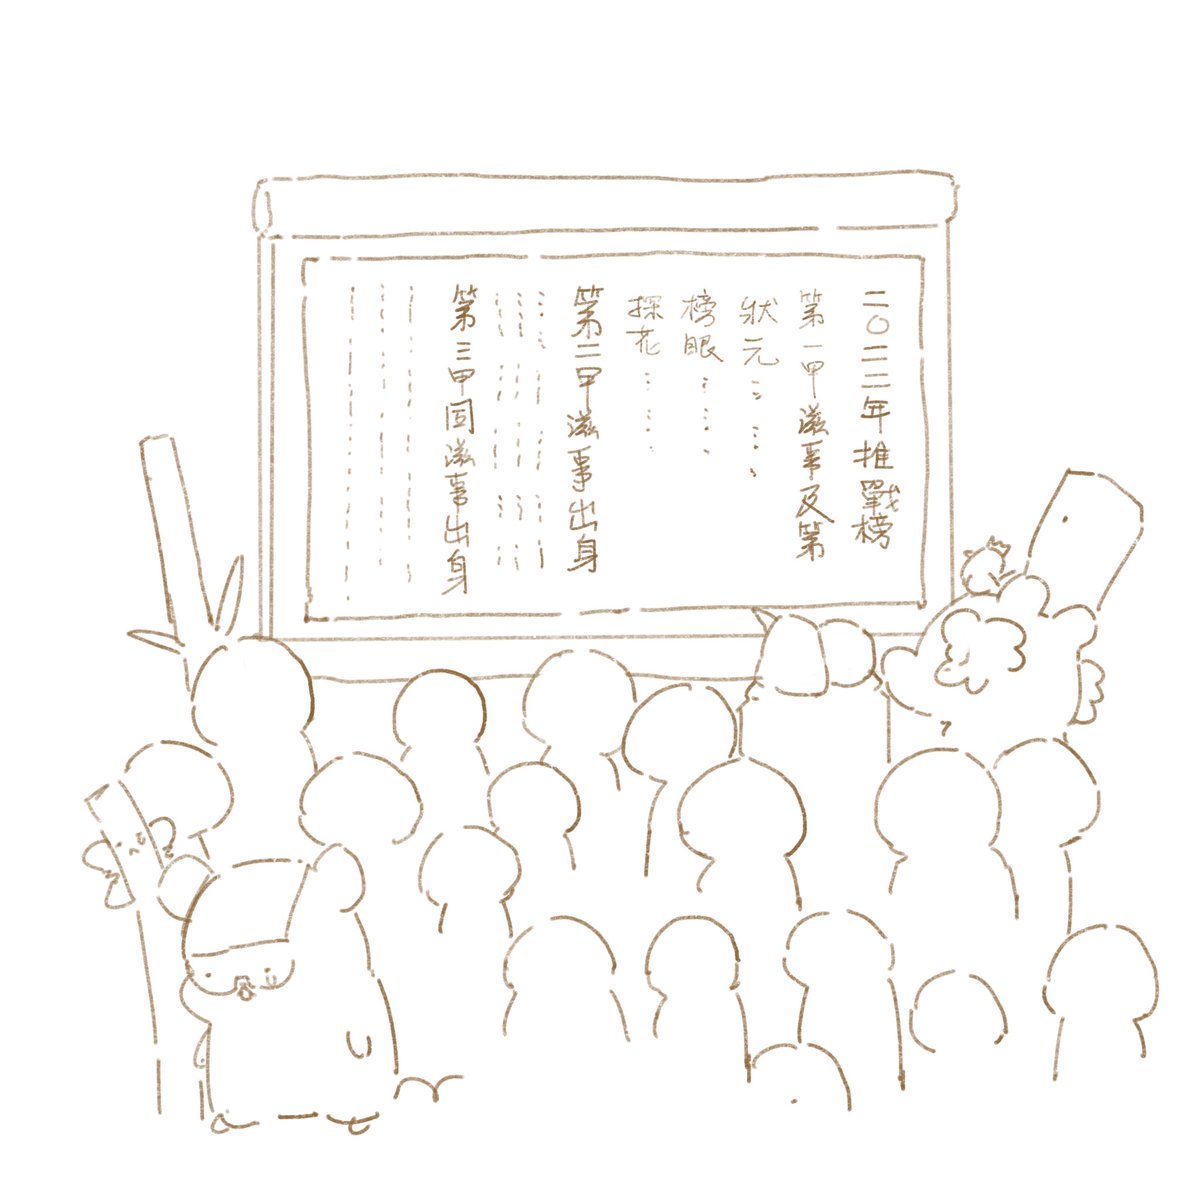 二〇二二年推戰榜
第一甲滋事及第
狀元
榜眼
探花
第二甲滋事出身
第三甲同滋事出身